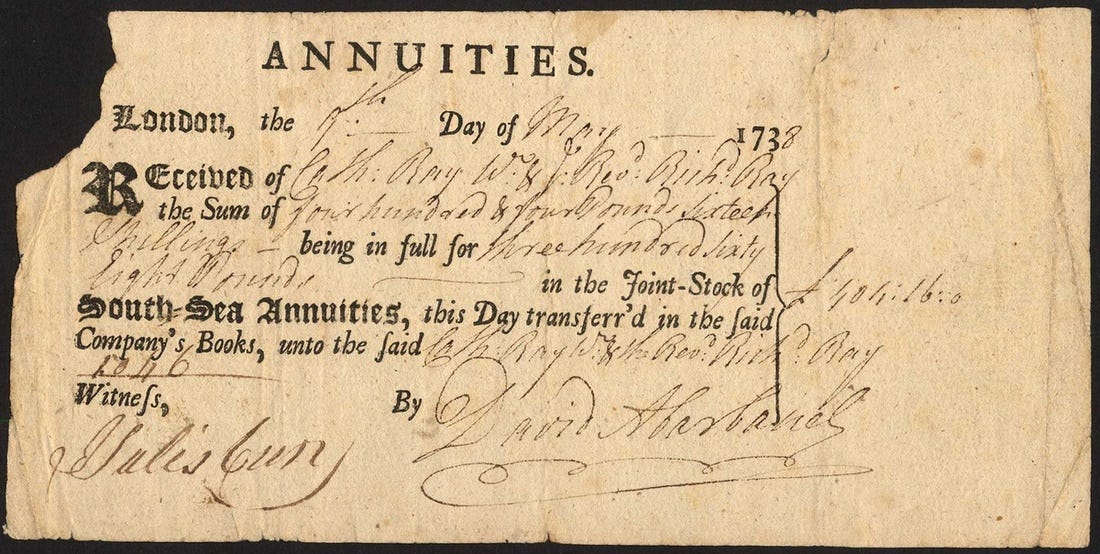 ANNUITIES.
London, the 9th Day of May 1738
REceived of Cath: Ray Wid. & ye Revd. Richd. Ray
the Sum of Four hundred & four Pounds sixteen
Shillings being in full for three hundred sixty
Eight Pounds in the Joint-Stock of
£404:16:0
South-Sea Annuities, this Day transferr'd in the said
Company's Books, unto the said Cath: Ray Wid. & the Revd. Richd. Ray
Witness, By David Abarbanel